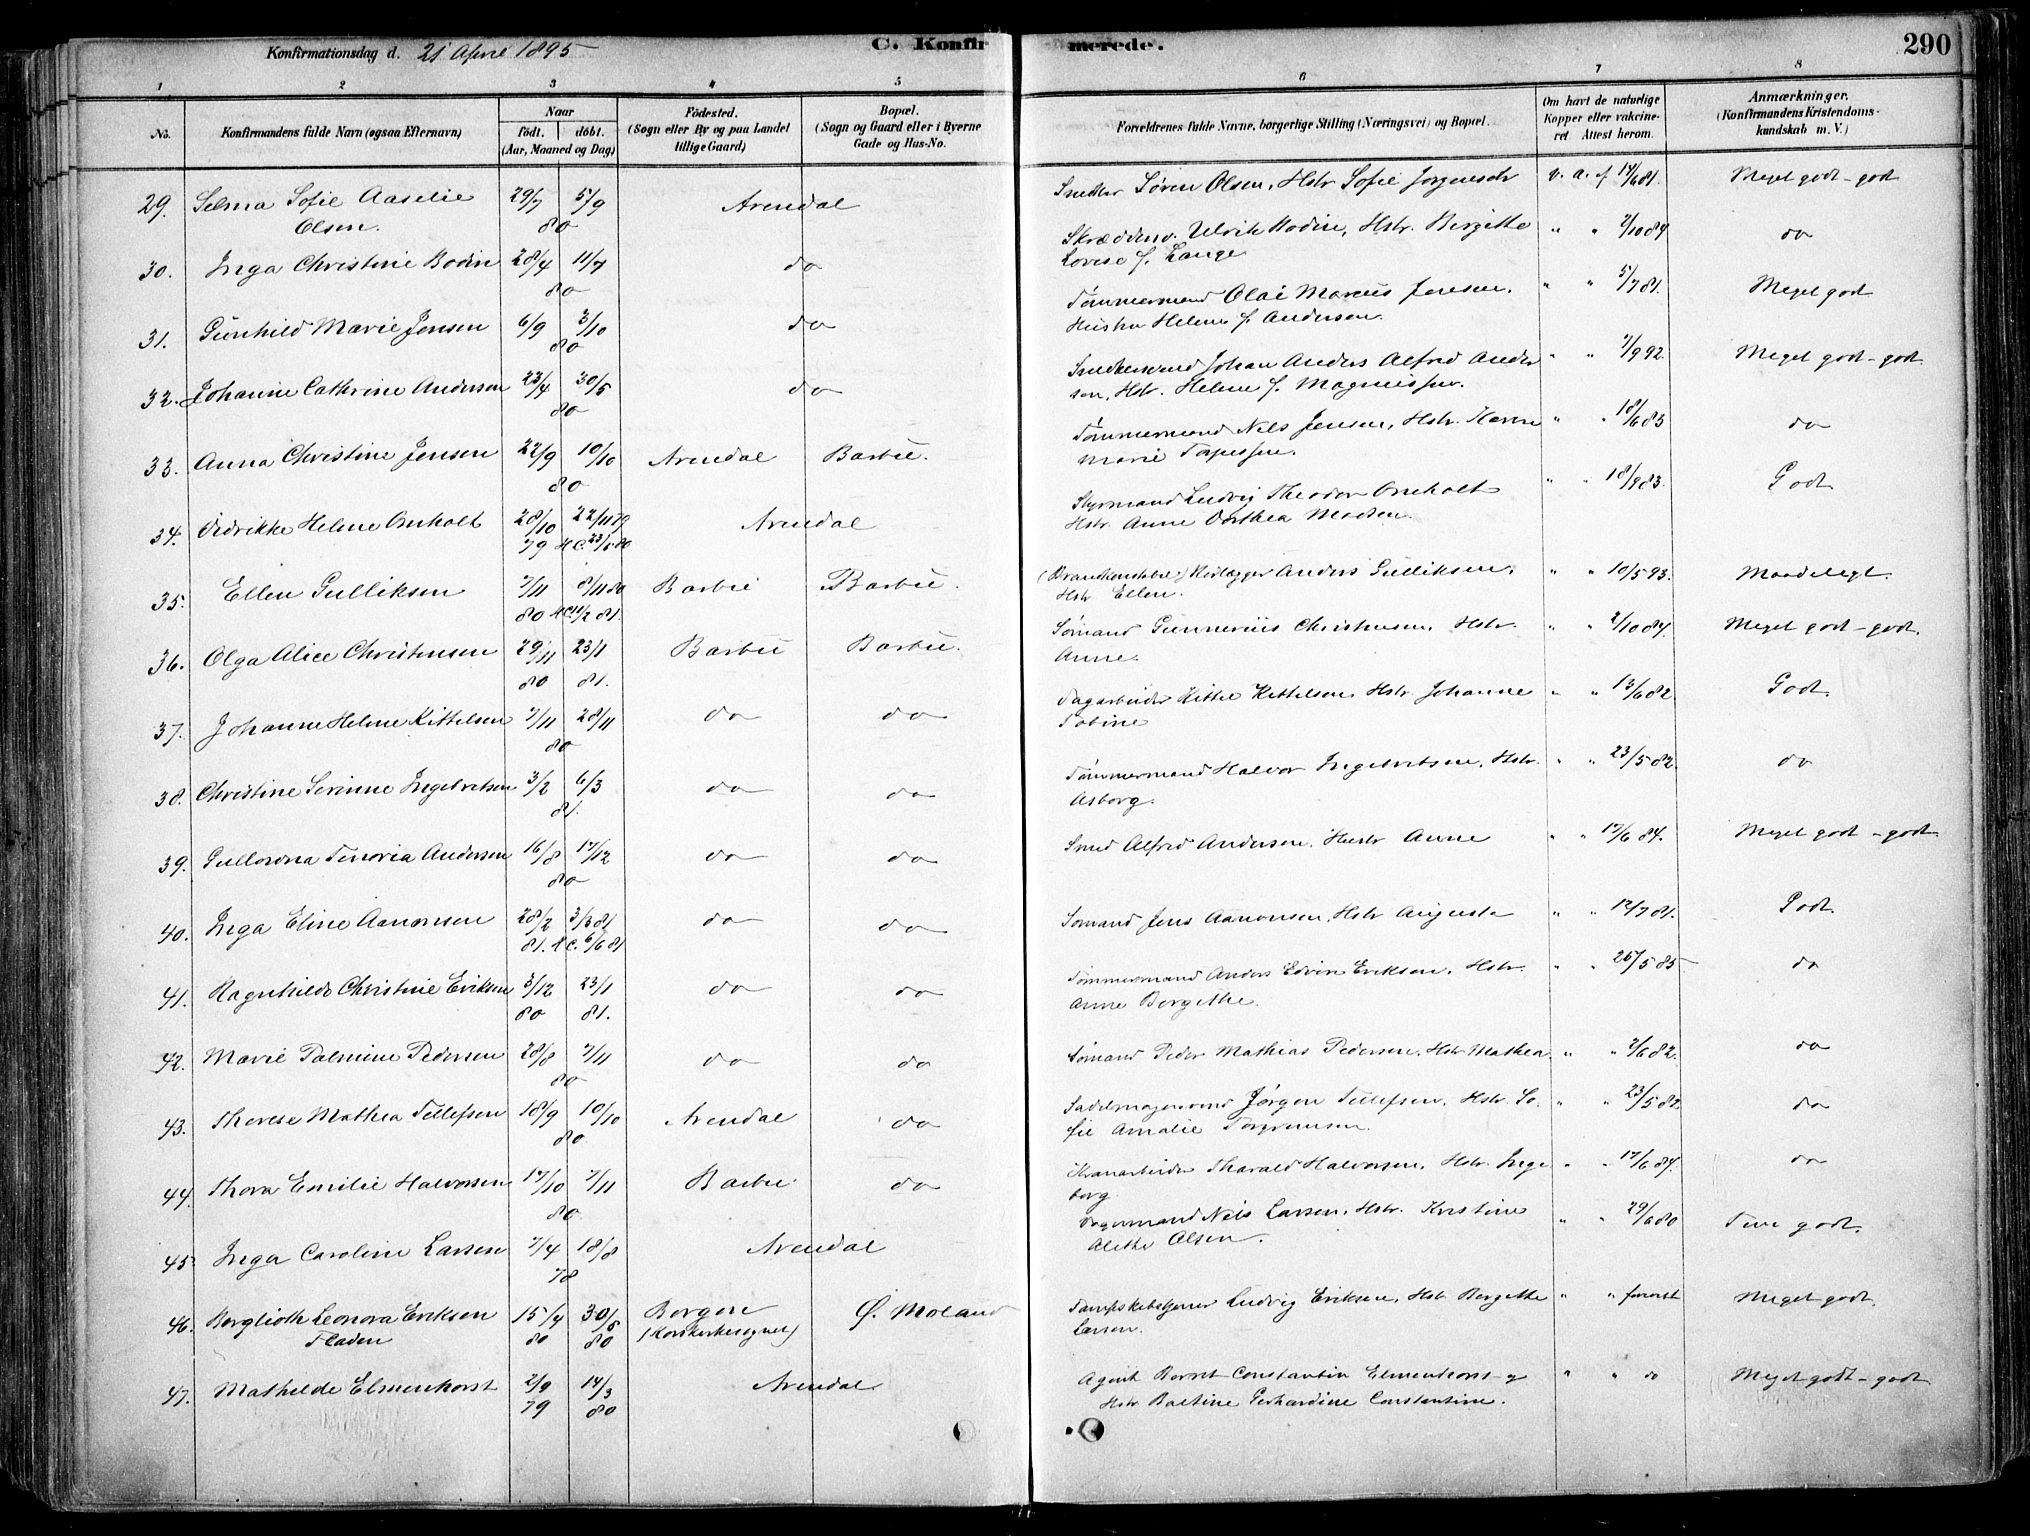 Konfirmationsdag d. 21 April 1895
C. Konfirmerede.
290
1 2 3 4 5 6 7 8
No. Konfirmandens fulde Navn (ogsaa Efternavn) Naar født. døbt. (Aar, Maaned og Dag) Fødested. (Sogn eller By og paa Landet tillige Gaard) Bopæl. (Sogn og Gaard eller i Byerne Gade og Hus-No. Forældrenes fulde Navne, borgerlige Stilling (Næringsvei) og Bopæl. Om havt de naturlige Kopper eller vakcineret Attest herom. Anmærkninger. (Konfirmandens Kristendomskundskab m. V.)
29. Selma Sofie Aaselie Olsen. 29/7 5/9 80 Arendal Snedker Søren Olsen, Hstr Sofie Jørgensdr v. a. af 14/6 81. Meget godt - godt
30. Inga Christine Bodin 28/4 11/7 80 do Skrædderv. Ulrik Bodin, Hstr. Bergitte Lovise f. Lange " " 2/10 84 do
31. Gunhild Marie Jensen 6/9 3/10 80 do Tømmermand Olai Marius Jensen, Hustru Helene f. Andersen. " " 5/7 81. Meget godt
32. Johanne Cathrine Andersen 23/4 30/5 80 do Snedkersvend Johan Anders Alfred Andersen, Hstr. Helene f. Magnussen. " " 7/9 92. Meget godt - godt
33. Anna Christine Jensen 22/9 10/10 80 Arendal Barbu. Tømmermand Niels Jensen, Hstr. Karen Marie Tapessen. " " 18/6 83 do
34. Didrikke Helene Omholt 28/10 79 22/11 79 H.C. 23/5 80 Arendal Styrmand Ludvig Theodor Omholt Hstr. Anne Dorthea Madsen. " " 18/9 83. Godt
35. Ellen Gulliksen 7/11 80 8/11 80 H.C. 11/2 81. Barbu Barbu. (Brandkonstabel) Rørlægger Anders Gulliksen, Hstr Ellen. " " 10/5 93. Maadeligt.
36. Olga Alice Christensen 29/11 80 23/1 81. Barbu Barbu. Sømand Gunnerius Christensen. Hstr. Anne. " " 2/10 84. Meget godt - godt.
37. Johanne Helene Kittelsen 7/11 28/11 80 do do Dagarbeider Kittel Kittelsen, Hstr Johanne Tobine " " 13/6 82 Godt.
38. Christine Serinne Ingebretsen 3/2 6/3 81. do do Tømmermand Halvor Ingebretsen, Hstr. Asborg. " " 23/5 82. do
39. Gullowna Tenoria Andersen 16/8 12/12 80 do do Smed Alfred Andersen, Hustr Anne " " 17/6 84. Meget godt - godt.
40. Inga Eline Aanonsen 28/2 81. 3/3 81 H.C. 6/6 81 do do Sømand Jens Aanonsen, Hstr Augusta " " 12/7 81. Godt.
41. Ragnhilde Christine Eriksen 3/12 80 23/1 81. do do Tømmermand Anders Edvin Eriksen, Hstr. Anne Bergithe. " " 26/5 85 do
42. Marie Palmine Pedersen 28/8 7/11 80 do do Sømand Peder Mathias Pedersen, Hstr Mathea. " " 2/6 82. do
43. Therese Mathea Tellefsen 18/9 10/10 80. Arendal do Sadelmagersvend Jørgen Tellefsen, Hstr. Sofie Amalie Torgrimsen. " " 23/5 82 do
44. Thora Emilie Halvorsen 17/10 7/11 80. Barbu do Kranarbeider Tharald Halvorsen, Hstr. Ingeborg " " 17/6 84. do
45. Inga Caroline Larsen 7/4 18/8 78 Arendal Dagermand Niels Larsen, Hstr. Kristine Alethe Olsen. " " 29/6 80 Temr godt.
46. Borglioth Leonora Eriksen Fladen 15/4 80 30/5 80 Bergen (Korskirkesognet) Ø. Moland Dampskibstjener Ludvig Eriksen, Hstr Bergethe Larsen. " " forevist Meget godt.
47. Mathilde Elmenhorst 2/9 79 14/3 80 Arendal Agent Bernt Constantin Elmenhorst og Hstr Baltine Gerhardine Constantine. " " do Meget godt - godt